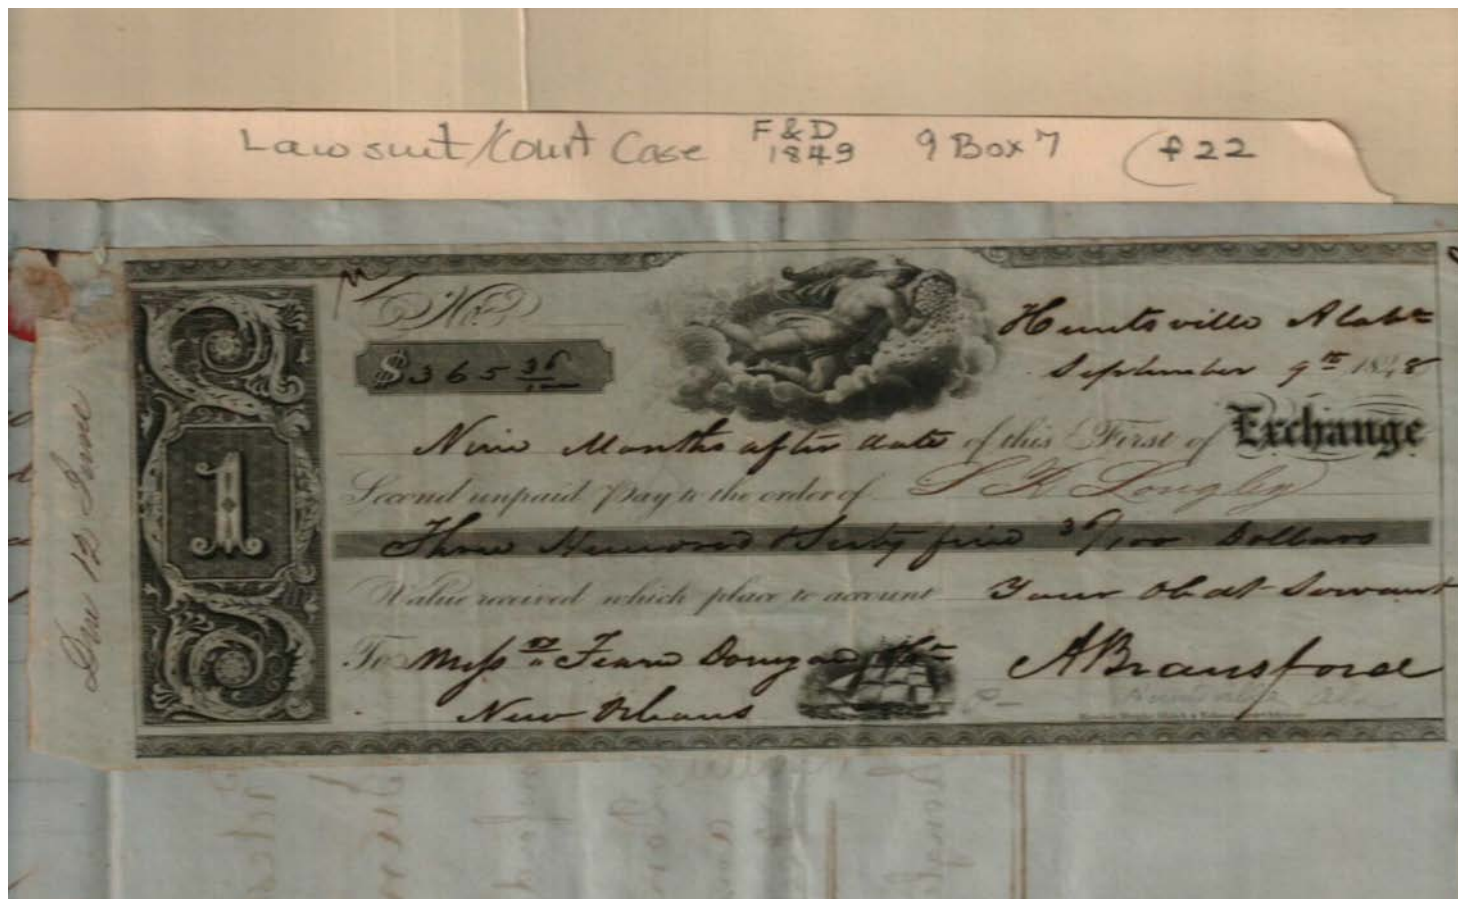 Lawsuit/Court Case F & D 1849 9 Box 7 f 22
No.
$365 36/100
Huntsville Alaba
September 9th 1848
Nine Months after date of this First of Exchange
Second unpaid Pay to the order of S K Longley
Three Hundred & Sixty five 36/100 Dollars
Value received which place to account Your Obdt Servant
To Messrs Fearn Donegan & Co A Bransford
New Orleans
Huntsville Ala
1
Due 12 June